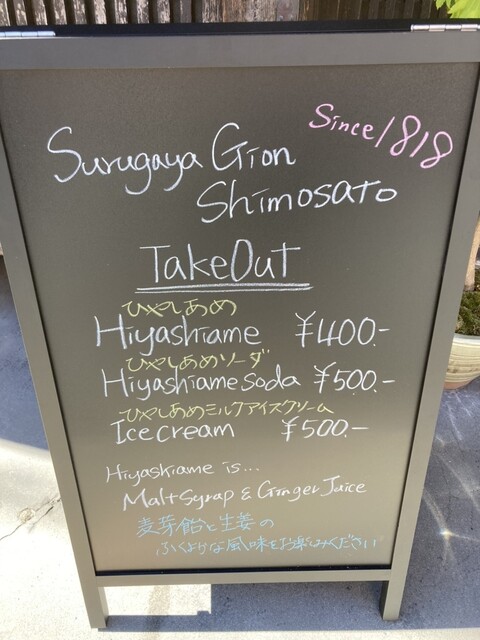 Since 1818
Surugaya Gion
Shimosato
TakeOut
ひやしあめ
Hiyashiame ¥400.-
ひやしあめソーダ
Hiyashiame soda ¥500.-
ひやしあめミルクアイスクリーム
Ice cream ¥500.-
Hiyashiame is...
Malt syrap & Ginger Jaice
麦芽飴と生姜の
ふくよかな風味をお楽しみください